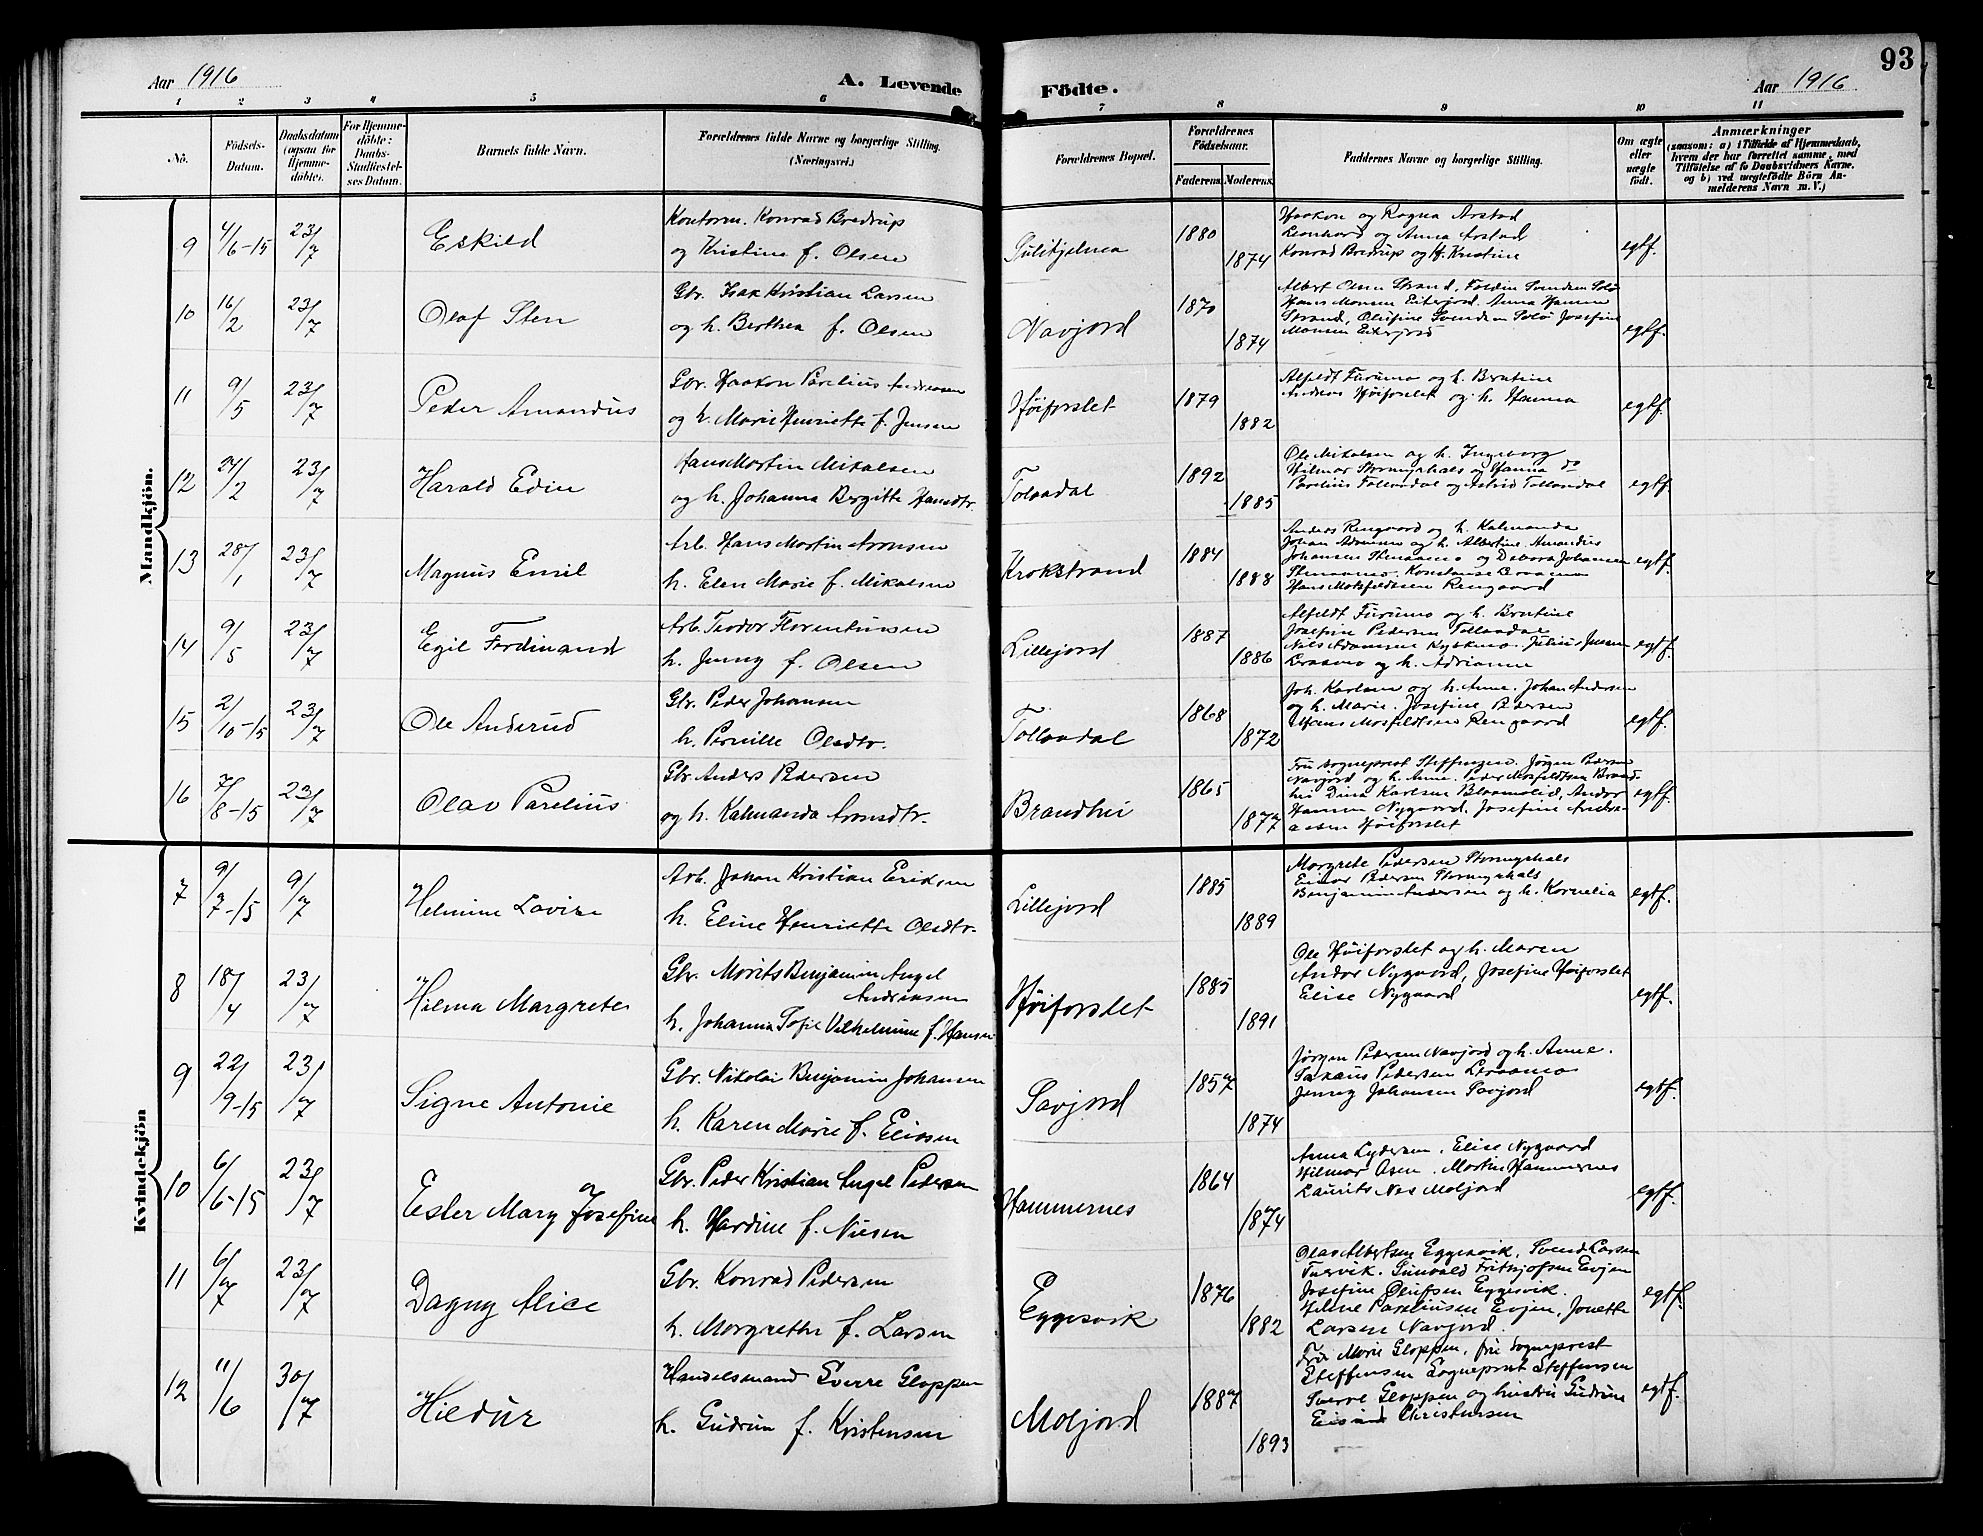 93
Aar 1916
A. Levende
Födte.
Aar 1916
1 2 3 4 5 6 7 8 9 10 11
No.
Födsels-Datum.
Daabsdatum (ogsaa for Hjemme-döbte).
For Hjemme-döbte: Daabs-Stadfæstel-ses Datum.
Barnets fulde Navn.
Forældrenes fulde Navne og borgerlige Stilling. (Næringsvei.)
Forældrenes Bopæl.
Forældrenes Födselsaar.
Faderens. Moderens.
Faddernes Navne og borgerlige Stilling.
Om ægte eller uægte født.
Anmærkninger
(saasom: a) i Tilfælde af Hjemmedaab, hvem der har forrettet samme, med Tilföielse af to Daabsvidners Navne, og b) ved uægtefödte Börn An-melderens Navn m. V.)
Mandkjön.
9 4/6-15 23/7 Eskild
Kontorm. Konrad Bredrup
og Kristine f. Olsen
Sulitjelma 1880 1874
Haakon og Ragna Arstad
Leonhard og Anna Arstad
Konrad Bredrup og H. Kristine
egtf.
10 16/2 23/7 Olaf Sten
Gbr. Isak Kristian Larsen
og h. Berthea f. Olsen
Navjord 1870 1874
Albert Olsen Strand,
Hans Monsen Eiterjord, Anna Hansen
Strand, Olufine Svendsen Josefine
Monsen Eiterjord
egtf.
11 9/5 23/7 Peder Amandus
Gbr. Haakon Parelius Andreasen
og h. Marie Henriette f. Jensen
Høiforslet 1879 1882
Alfeldt Furumo og h. Bratine
Andreas Høiforslet og h. Hanna
egtf.
12 24/2 23/7 Harald Edin
Hans Martin Mikalsen
og h. Johanna Bergitte Hansdtr.
Tolaadal 1892 1885
Ole Mikalsen og h. Ingeborg
Hilmar Stormyrhals og Hanna do
Parelius Tollaadal og Astrid Tollaadal
egtf.
13 28/1 23/7 Magnus Emil
Arb. Hans Martin Aronsen
h. Elen Marie f. Mikalsen
Krokstrand 1884 1888
Anders Rengaard og h. Kalmanda
Johan Adamsmo og h. Albertine Amandus
Johansen Stenaamo og Debora Johansen
Stenaamo. Konstanse Leraamo
Hans Mosfeldtsen Rengaard
egtf.
14 9/5 23/7 Egil Ferdinand
Arb. Teodor Florentinsen
h. Jenny f. Olsen
Lillejord 1887 1886
Alfeldt Furumo og h. Bratine
Josefine Pedersen Tollaadal
Nils Adamsen Julius Jensen
Leraamo og h. Adrianne
egtf.
15 2/10-15 23/7 Ole Anderud
Gbr. Peder Johansen
h. Pernille Olsdtr.
Tollaadal 1868 1872
Joh. Karlsen og h. Anne. Johan Andersen
og h. Marie. Josefine Pedersen
Hans Mosfeldtsen Rengaard
egtf.
16 7/8-15 23/7 Olav Parelius
Gbr. Anders Pedersen
og h. Kalmanda Aronsdtr.
Brandhei 1865 1877
Fru sogneprest Steffensen. Jørgen Pedersen
Navjord og h. Anne. Peder Mosfeldtsen Brand-
hei Dina Karlsen Blaamolid, Andor
Hansen Nygaard. Josefine Andre-
assen Høiforslet
egtf.
Kvindekjön
7 9/7-15 9/7 Helmine Lovise
Arb. Johan Kristian Eriksen
h. Eline Henriette Olsdtr.
Lillejord 1885 1889
Margrete Pedersen Stormyrhals
Einar Pedersen Stormyrhals
Benjamin Andersen og h. Kornelia
egtf.
8 18/4 23/7 Hilma Margrete
Gbr. Morits Benjamin Angel
Andreasen
h. Johanna Sofie Vilhelmine f. Hansen
Høiforslet 1885 1891
Ole Høiforslet og h. Maren
Andor Nygaard, Josefine Høiforslet
Elise Nygaard
egtf.
9 22/9-15 23/7 Signe Antonie
Gbr. Nikolai Benjamin Johansen
h. Karen Marie f. Eliasen
Savjord 1857 1874
Jørgen Pedersen Navjord og h. Anne.
Pedersen Leraamo
Jenny Johansen Savjord
egtf.
10 6/6-15 23/7 Ester Mary Josefine
Gbr. Peder Kristian Angel Pedersen
h. Hardine f. Nilsen
Hammernes 1864 1874
Anna Lydersen. Elise Nygaard
Hilmar Osen. Martin Hammernes
Laurits Nes Moljord
egtf.
11 6/7 23/7 Dagny Alice
Gbr. Konrad Pedersen
h. Margrethe f. Larsen
Eggesvik 1876 1882
Olav Albertsen Eggesvik, Svend Larsen
Tuervik. Sunvald Frithjofsen Evjen
Josefine Olufsen Eggesvik.
Helene Pareliusen Evjen, Jonette
Larsen Navjord.
egtf.
12 11/6 30/7 Hildur
Handelsmand Sverre Gloppen
h. Gudrun f. Kristensen
Moljord 1887 1893
Fru Marie Gloppen, fru sogneprest
Steffensen Sogneprest Steffensen
Sverre Gloppen og hustru Gudrun
Christensen
egtf.